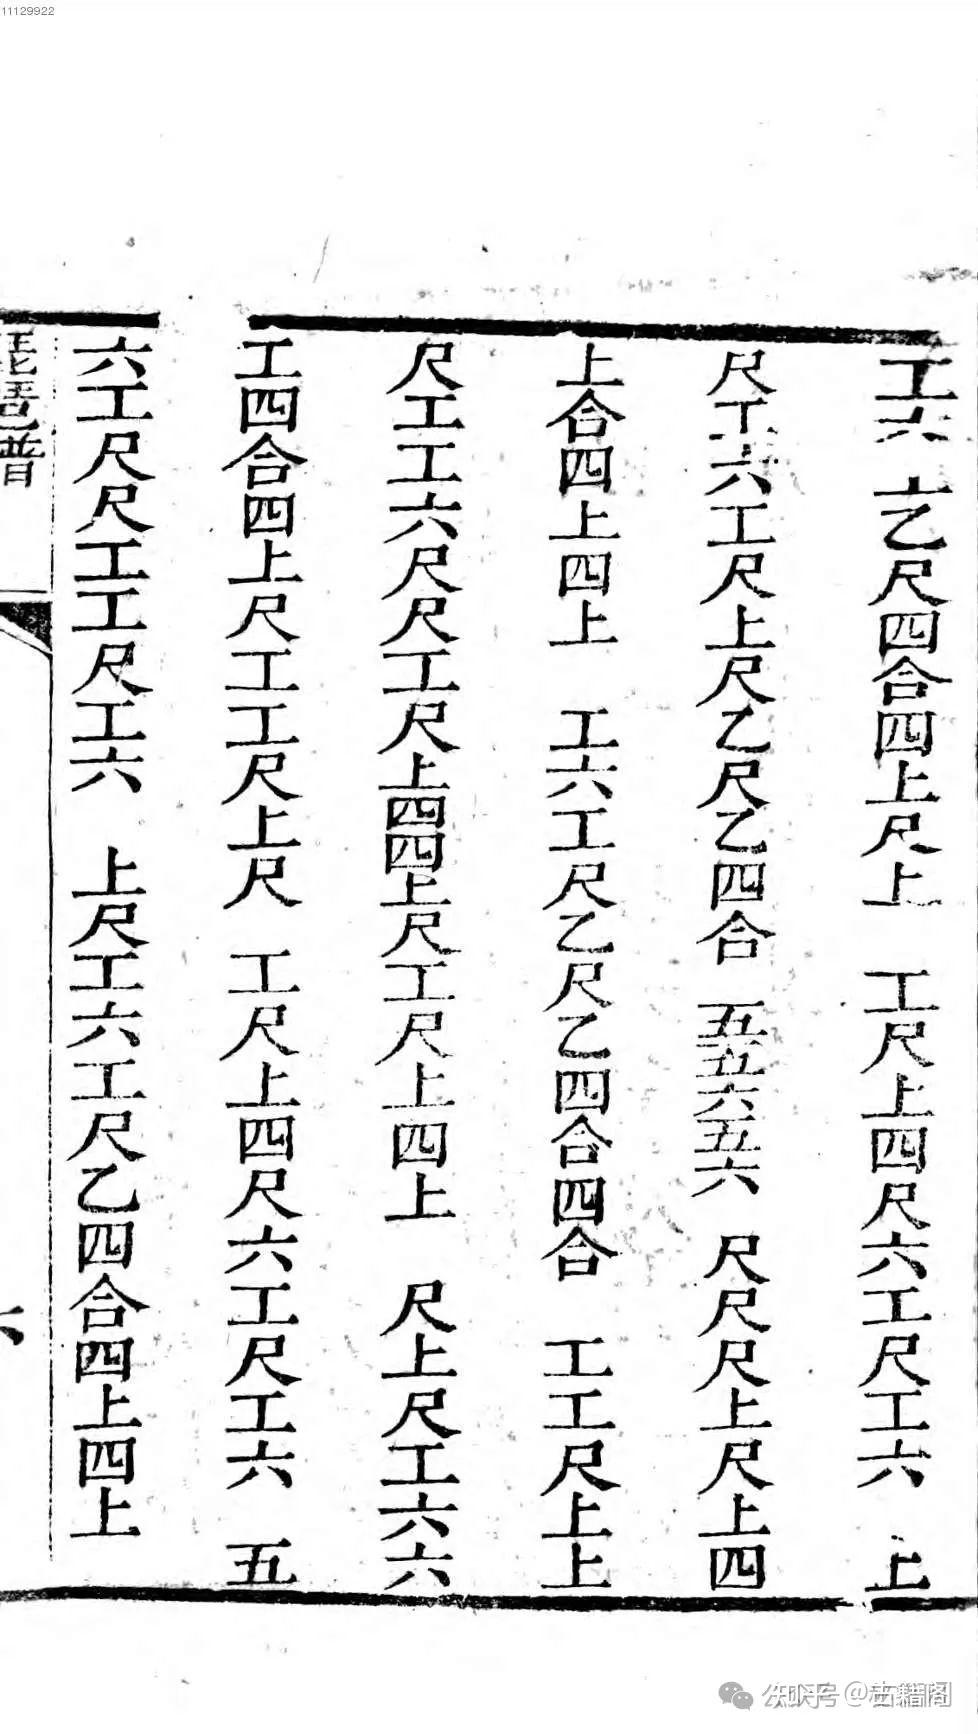 11129922
工六 乙尺四合四上尺上 工尺上四尺六工尺工六 上
尺工六工尺上尺乙尺乙四合 五五六五六 尺尺尺上尺上四
上合四上四上 工六工尺乙尺乙四合四合 工工尺上上
尺工工六尺尺工尺上四四上尺工尺上四上 尺上尺工六六
工四合四上尺工工尺上尺 工尺上四尺六工尺工六 五
六工尺尺工工尺工六 上尺工六工尺乙四合四上四上
琵琶普
六
知乎 @古籍阁